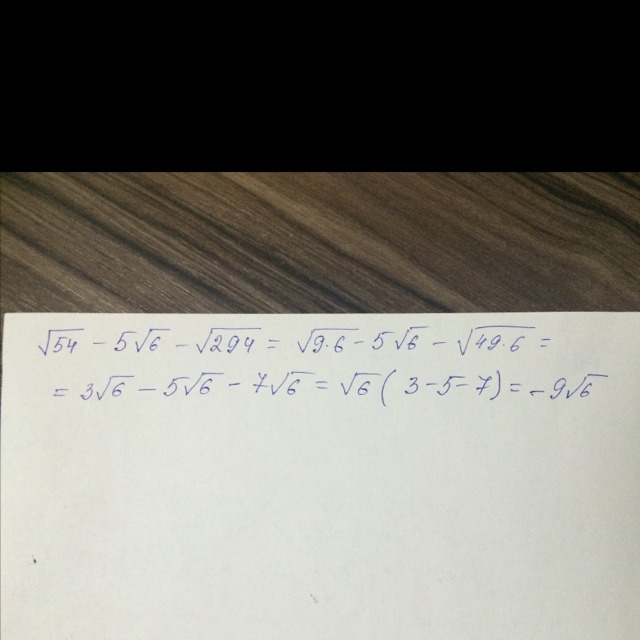 √54 - 5√6 - √294 = √9·6 - 5√6 - √49·6 =
= 3√6 - 5√6 - 7√6 = √6 ( 3-5-7) = -9√6